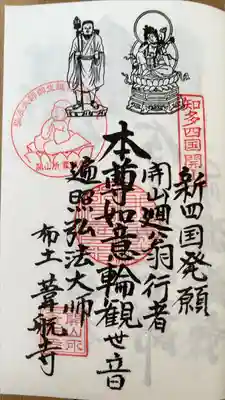 新四国発願
開山廻翁行者
本尊如意輪観世音
遍照弘法大師
布土 葦航寺
知多四国開